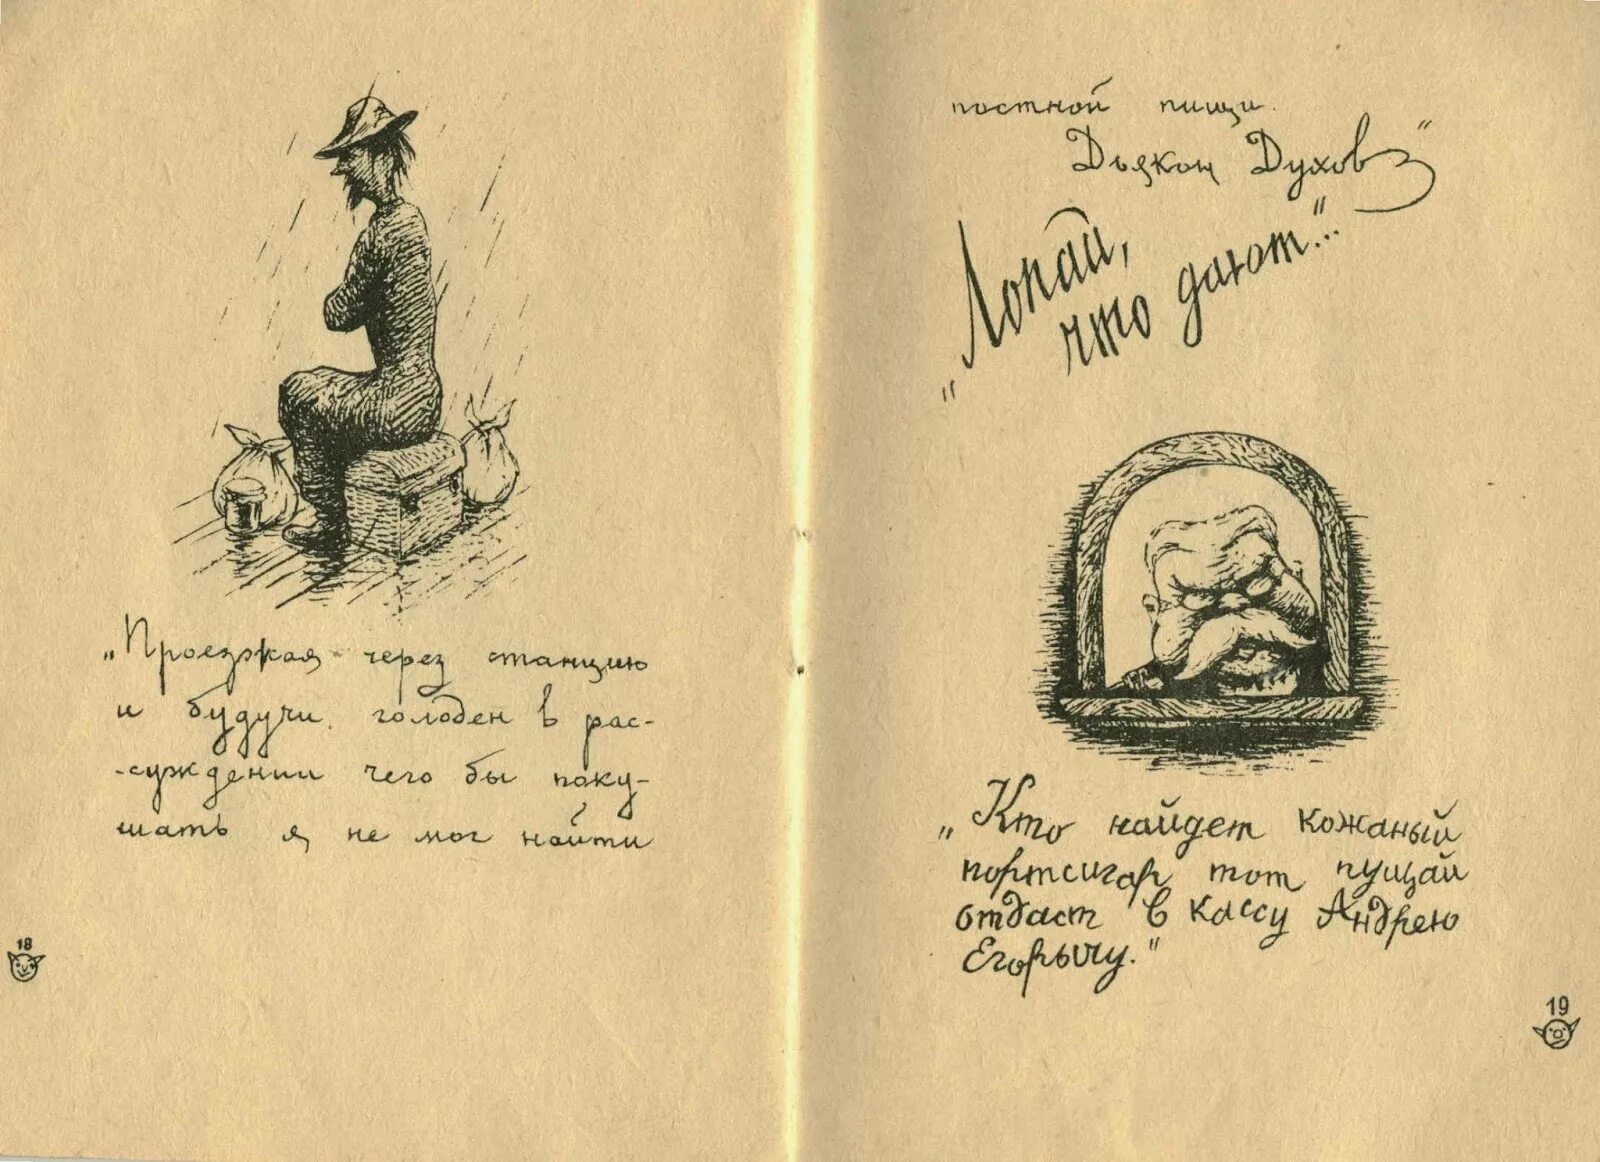 „Проезжая через станцию
и будучи голоден в рас-
-суждении чего бы поку-
шать я не мог найти
18
постной пищи.
Дьякон Духов"
„Лопай,
что дают"...
„Кто найдет кожаный
портсигар тот пущай
отдаст в кассу Андрею
Егорычу."
19